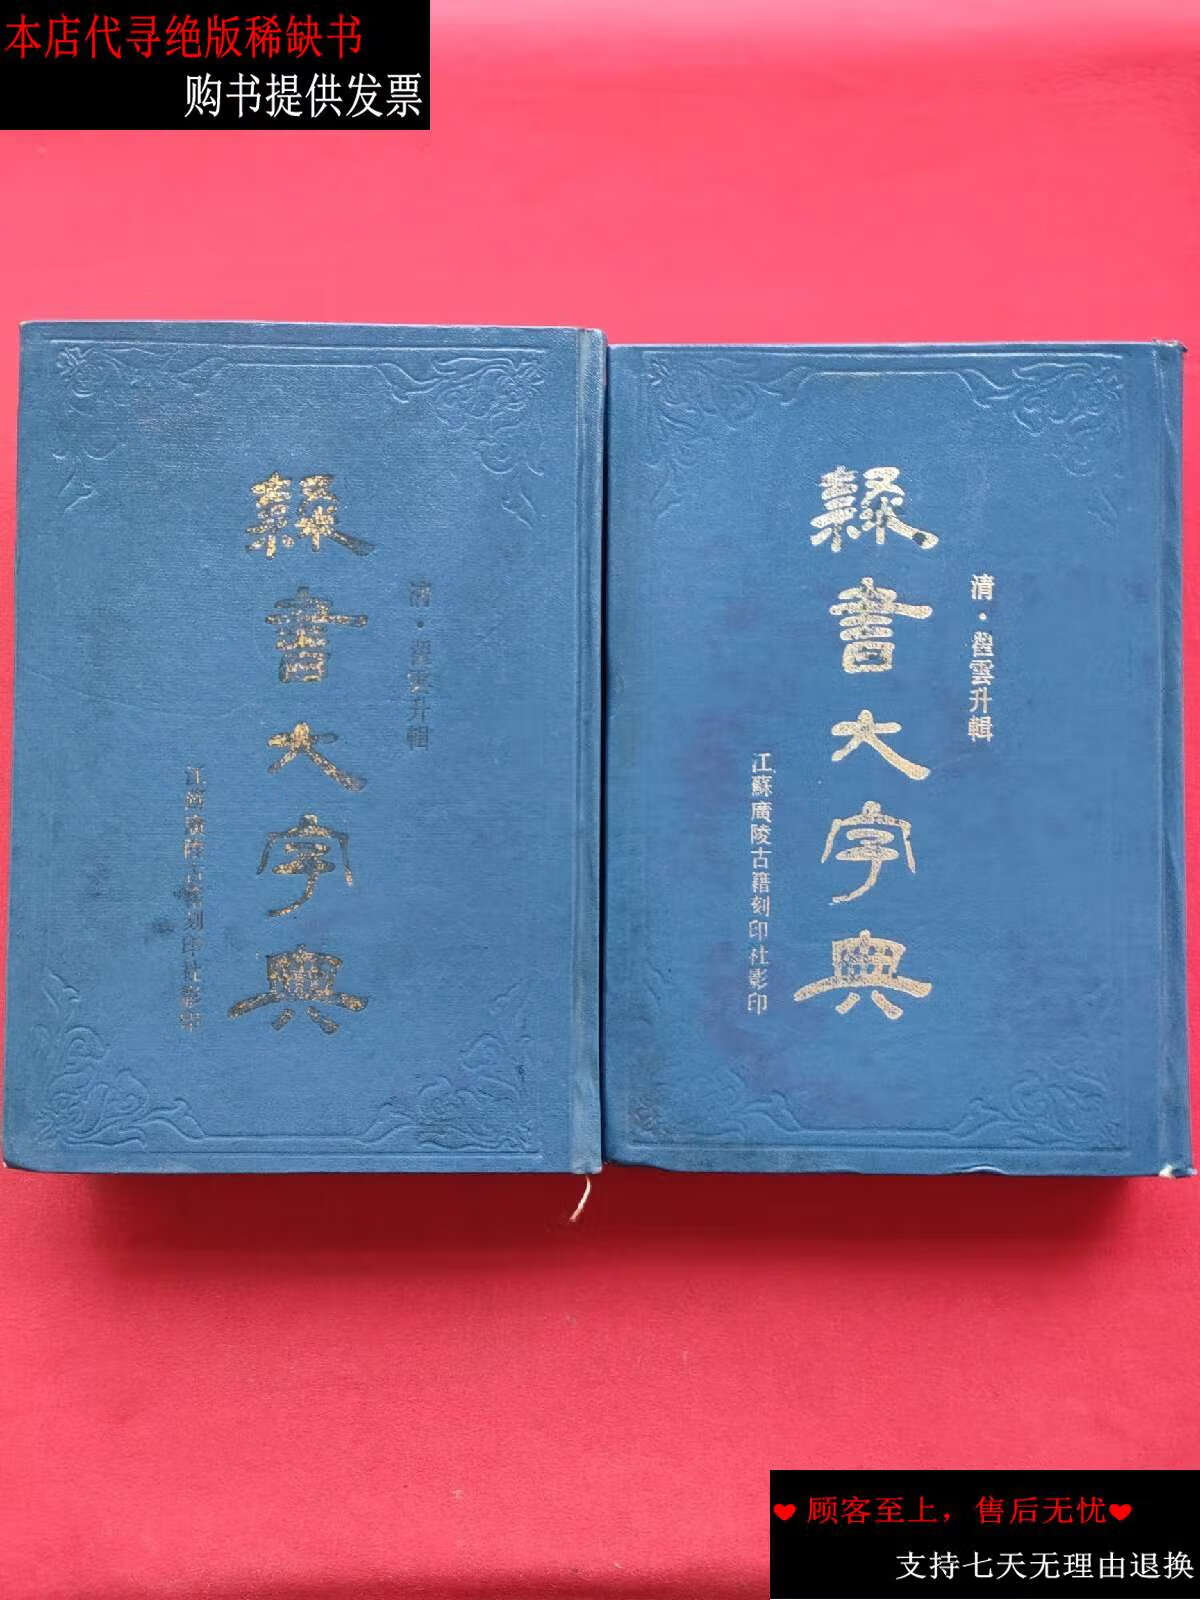 本店代寻绝版稀缺书
购书提供发票
清·翟雲升輯
隸書大字典
江蘇廣陵古籍刻印社影印
清·翟雲升輯
隸書大字典
江蘇廣陵古籍刻印社影印
❤ 顾客至上，售后无忧❤
支持七天无理由退换